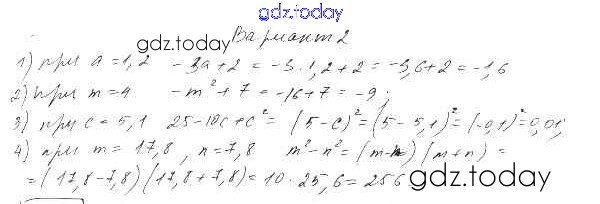 gdz.today
gdz.today Вариант 2
1) при a = 1,2 - 3a + 2 = -3 · 1,2 + 2 = -3,6 + 2 = -1,6
2) при m = 4 - m² + 7 = -16 + 7 = -9.
3) при c = 5,1 25 - 10c + c² = (5 - c)² = (5 - 5,1)² = (-0,1)² = 0,01;
4) при m = 17,8, n = 7,8 m² - n² = (m - n)(m + n) =
= (17,8 - 7,8)(17,8 + 7,8) = 10 · 25,6 = 256
gdz.today